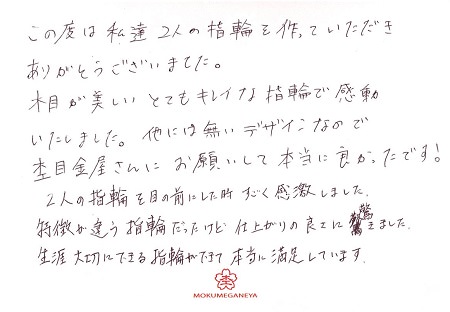 この度は私達2人の指輪を作っていただき
ありがとうございました。
木目が美しいとてもキレイな指輪で感動
いたしました。他には無いデザインなので
杢目金屋さんにお願いして本当に良かったです!
2人の指輪を目の前にした時すごく感激しました。
特徴が違う指輪だったけど仕上がりの良さに驚きました。
生涯大切にできる指輪ができて本当に満足しています。
MOKUMEGANEYA